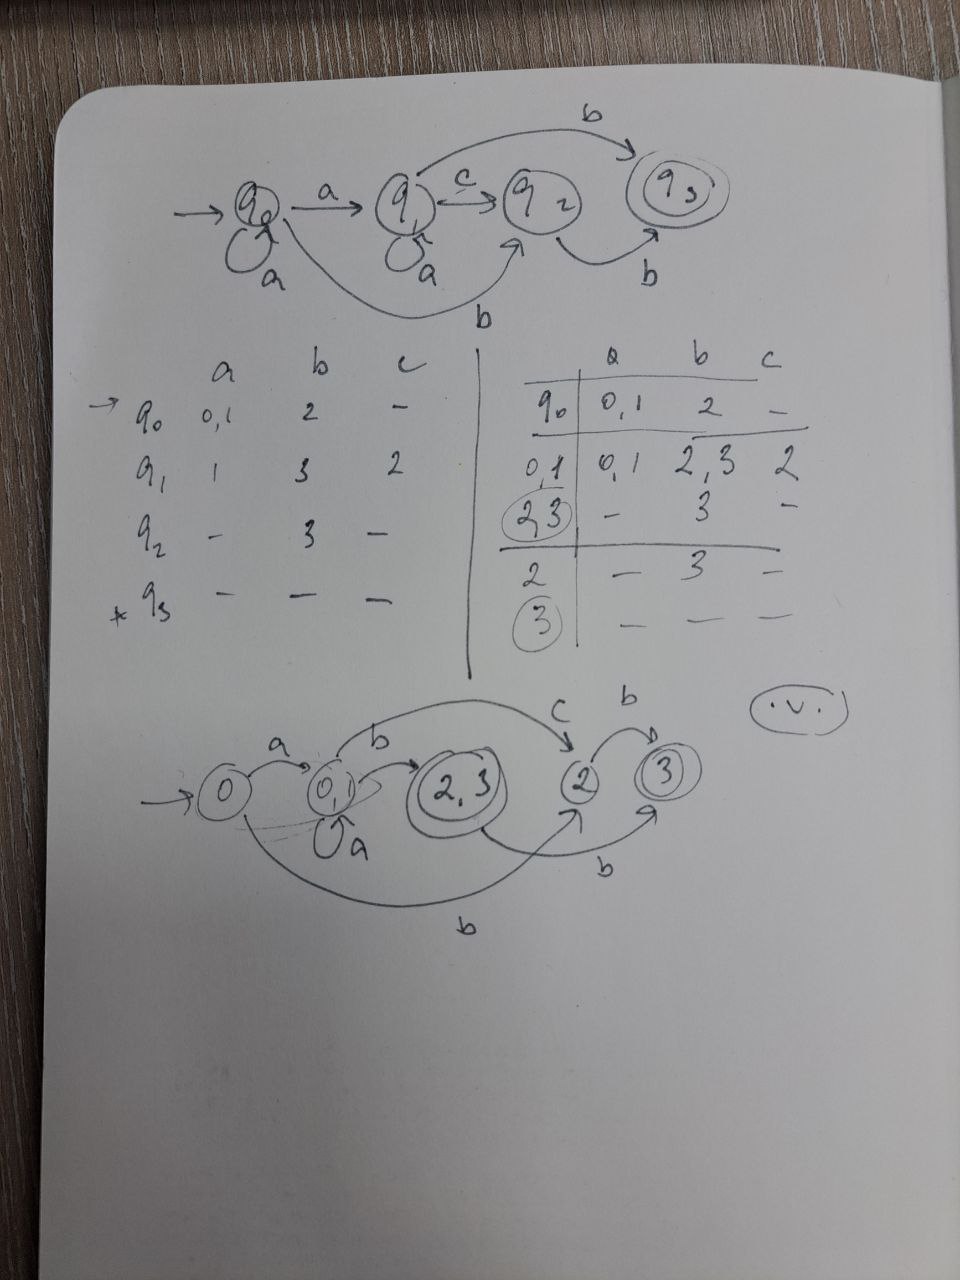 b
a c
q₀ q₁ q₂ q₃
a a b
b
a b c
→ q₀ 0,1 2 –
q₁ 1 3 2
q₂ – 3 –
* q₃ – – –
a b c
q₀ 0,1 2 –
0,1 0,1 2,3 2
2,3 – 3 –
2 – 3 –
3 – – –
a b c b
0 0,1 2,3 2 3
a b
b